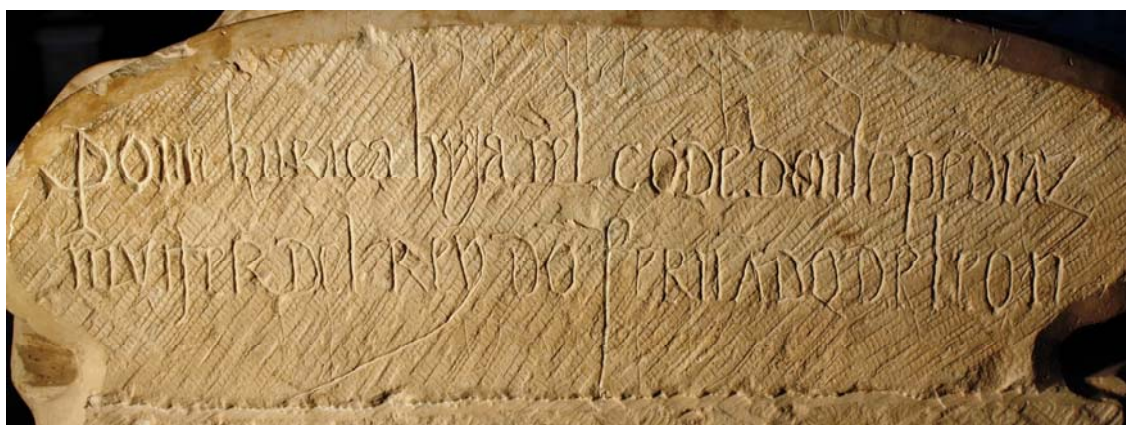 doña hurraca hija del cōde don lopediaz
mvijer del Rey dō fernādo de leon